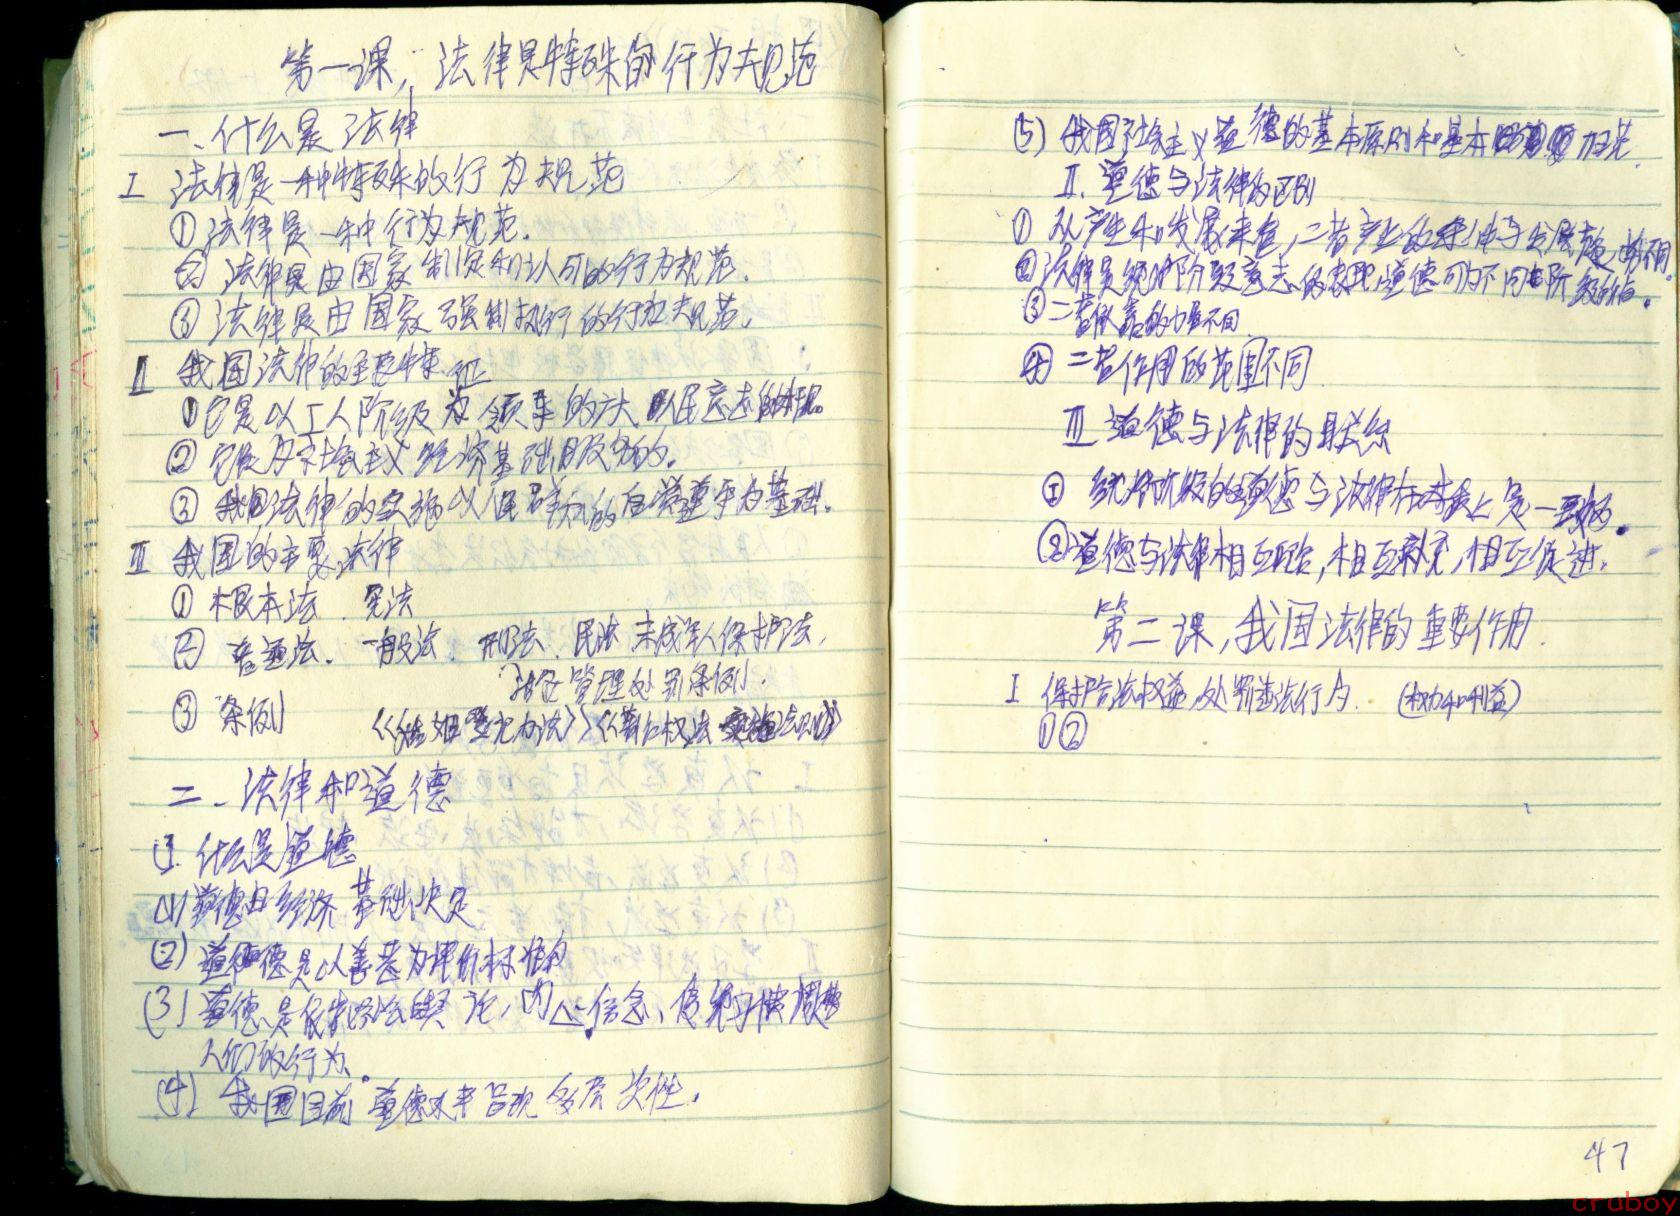 第一课，法律是特殊的行为规范
一、什么是法律
I 法律是一种特殊的行为规范
① 法律是一种行为规范.
② 法律是由国家制定和认可的行为规范.
③ 法律是由国家强制执行的行为规范.
II 我国法律的主要特征
① 它是以工人阶级为领导的广大人民意志的体现.
② 它是为社会主义经济基础服务的.
③ 我国法律的实施以人民群众的自觉遵守为基础.
III 我国的主要法律
① 根本法 宪法
② 普通法. 一般法. 刑法. 民法 未成年人保护法,
治安管理处罚条例.
③ 条例 《婚姻登记办法》《 法 》
二、法律和道德
I. 什么是道德
(1) 道德由经济基础决定
(2) 道德是以善恶为评价标准的
(3) 道德是依靠 舆论,内心信念、传统习惯调整
人们的行为.
(4) 我国目前道德水平呈现多层次性.
(5) 我国社会主义道德的基本原则和基本 规范.
II. 道德与法律的区别
① 从产生和发展来看,二者产生的条件与发展趋 不同.
② 法律是统治阶级意志的表现,道德可为不同阶级 .
③ 二者依靠的力量不同
④ 二者作用的范围不同
III 道德与法律的联系
① 统治阶级的道德与法律在本质上是一致的.
② 道德与法律相互配合,相互补充,相互促进.
第二课,我国法律的重要作用.
I 保护合法权益,处罚违法行为. (权力和利益)
①②
47
cruboy